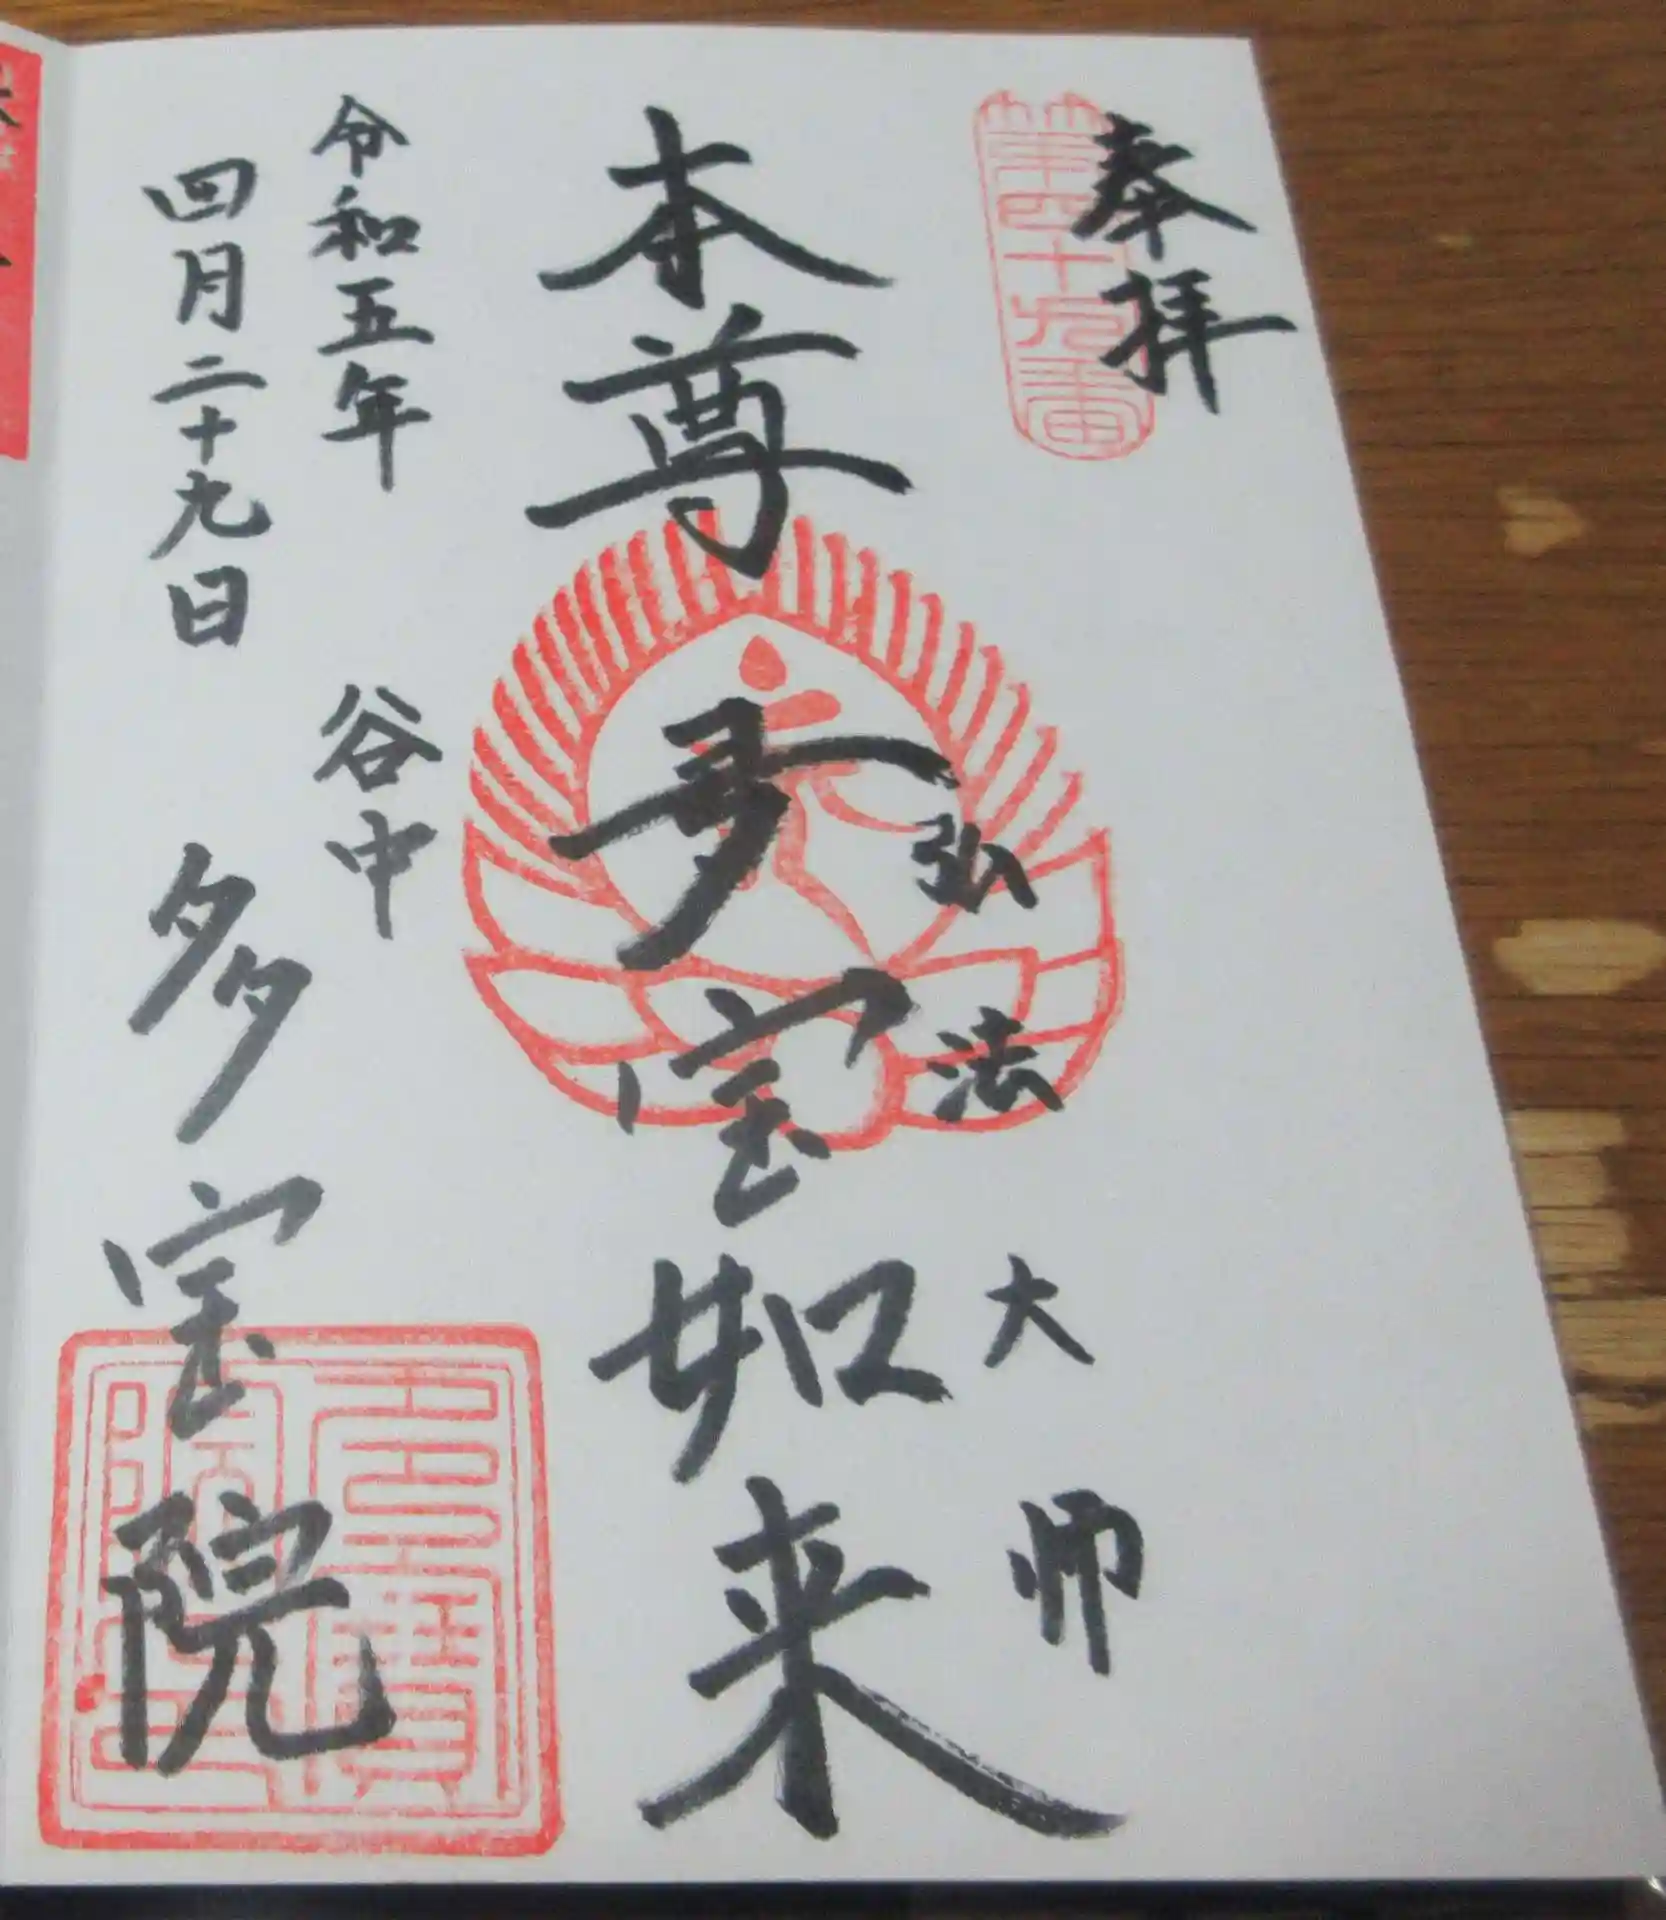 奉拝
第四十九番
弘法大師
本尊 多宝如来
令和五年
四月二十九日
谷中
多宝院
多寶院